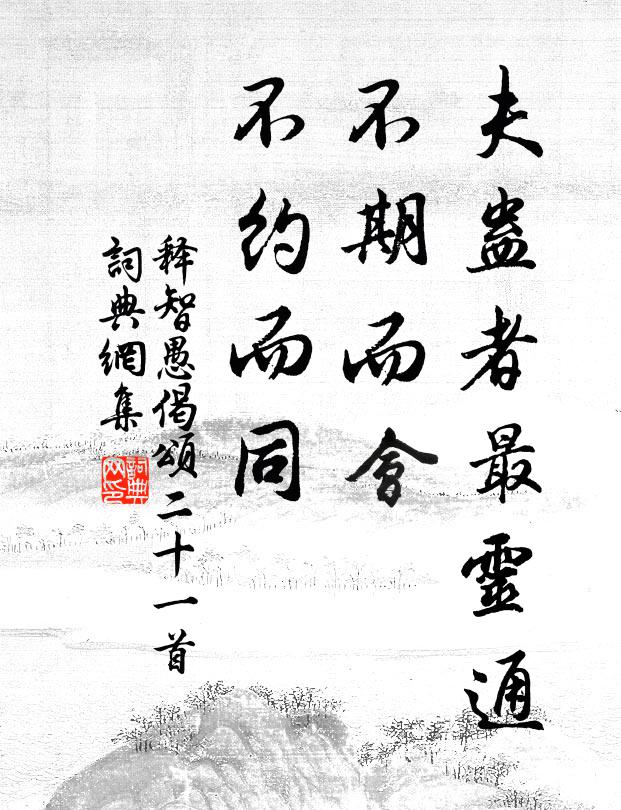 夫蛊者最靈通
不期而會
不約而同
释智愚偈頌二十一首
詞典網集
詞典網印